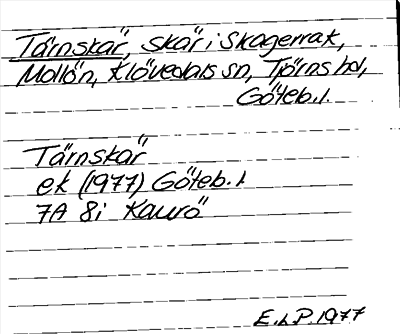 Tärnskär, skär i Skagerrak,
Mollön, Klövedals sn, Tjörns hd,
Göteb. l.
Tärnskär
ek (1977) Göteb. l
7A 8i Kaurö
E.h.P. 1977